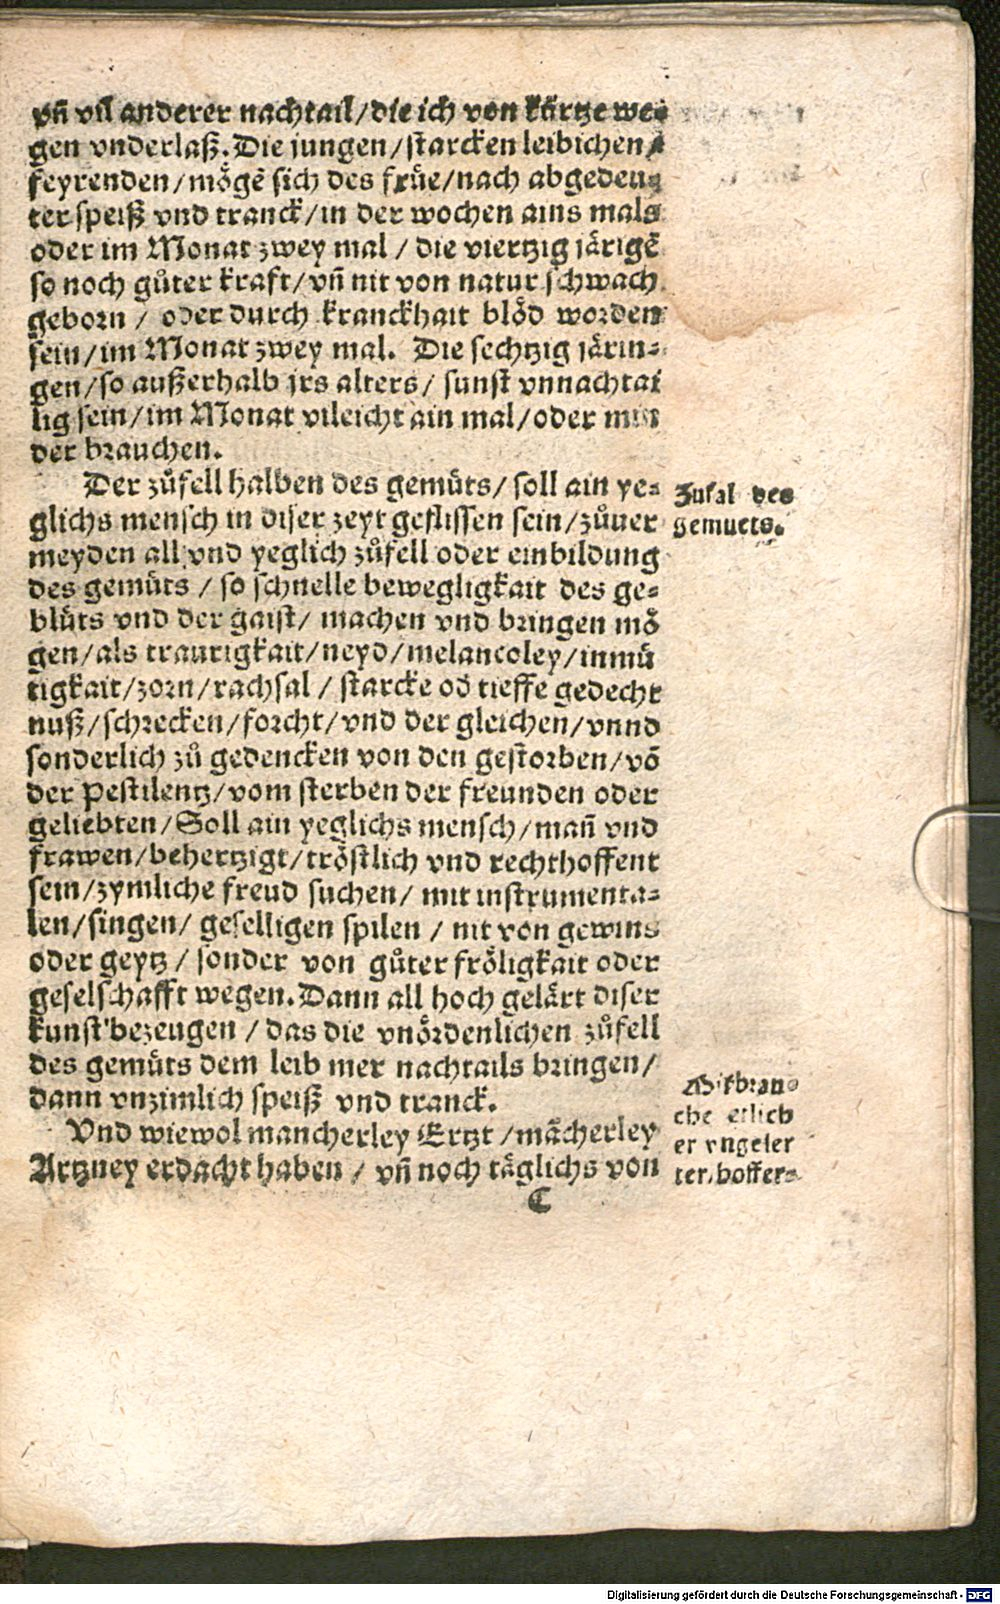 vn̄ vil anderer nachtail/die ich von kürtze we⸗
gen vnderlaß. Die jungen/starcken leibichen/
feyrenden/mögē sich des früe/nach abgedeu⸗
ter speiß vnd tranck/in der wochen ains mals
oder im Monat zwey mal / die viertzig järigē
so noch gůter kraft/vn̄ nit von natur schwach
geborn / oder durch kranckhait blöd worden
sein/im Monat zwey mal. Die sechtzig järin⸗
gen/so außerhalb jrs alters/ sunst vnnachtai
lig sein/im Monat vileicht ain mal/oder min
der brauchen.
Der zůfell halben des gemüts/ soll ain ye⸗
glichs mensch in diser zeyt geflissen sein/zůuer
meyden all vnd yeglich zůfell oder einbildung
des gemüts / so schnelle bewegligkait des ge⸗
blüts vnd der gaist/ machen vnd bringen mö
gen/als traurigkait/neyd/melancoley/inmü
tigkait/zorn/rachsal / starcke od̄ tieffe gedecht
nuß/schrecken/forcht/vnd der gleichen/vnnd
sonderlich zů gedencken von den gestorben/vō
der Pestilentz/vom sterben der freunden oder
geliebten/Soll ain yeglichs mensch/man̄ vnd
frawen/behertzigt/tröstlich vnd rechthoffent
sein/zymliche freud suchen/ mit instrumenta⸗
len/singen/ geselligen spilen / nit von gewins
oder geytz / sonder von gůter fröligkait oder
geselschafft wegen. Dann all hoch gelärt diser
kunst bezeugen / das die vnördenlichen zůfell
des gemüts dem leib mer nachtails bringen/
dann vnzimlich speiß vnd tranck.
Vnd wiewol mancherley Ertzt /mācherley
Artzney erdacht haben / vn̄ noch täglichs von
C
Zufal des
gemuets.
Mißbrau⸗
che etlich
er vngeler
ter/hoffer⸗
Digitalisierung gefördert durch die Deutsche Forschungsgemeinschaft - DFG